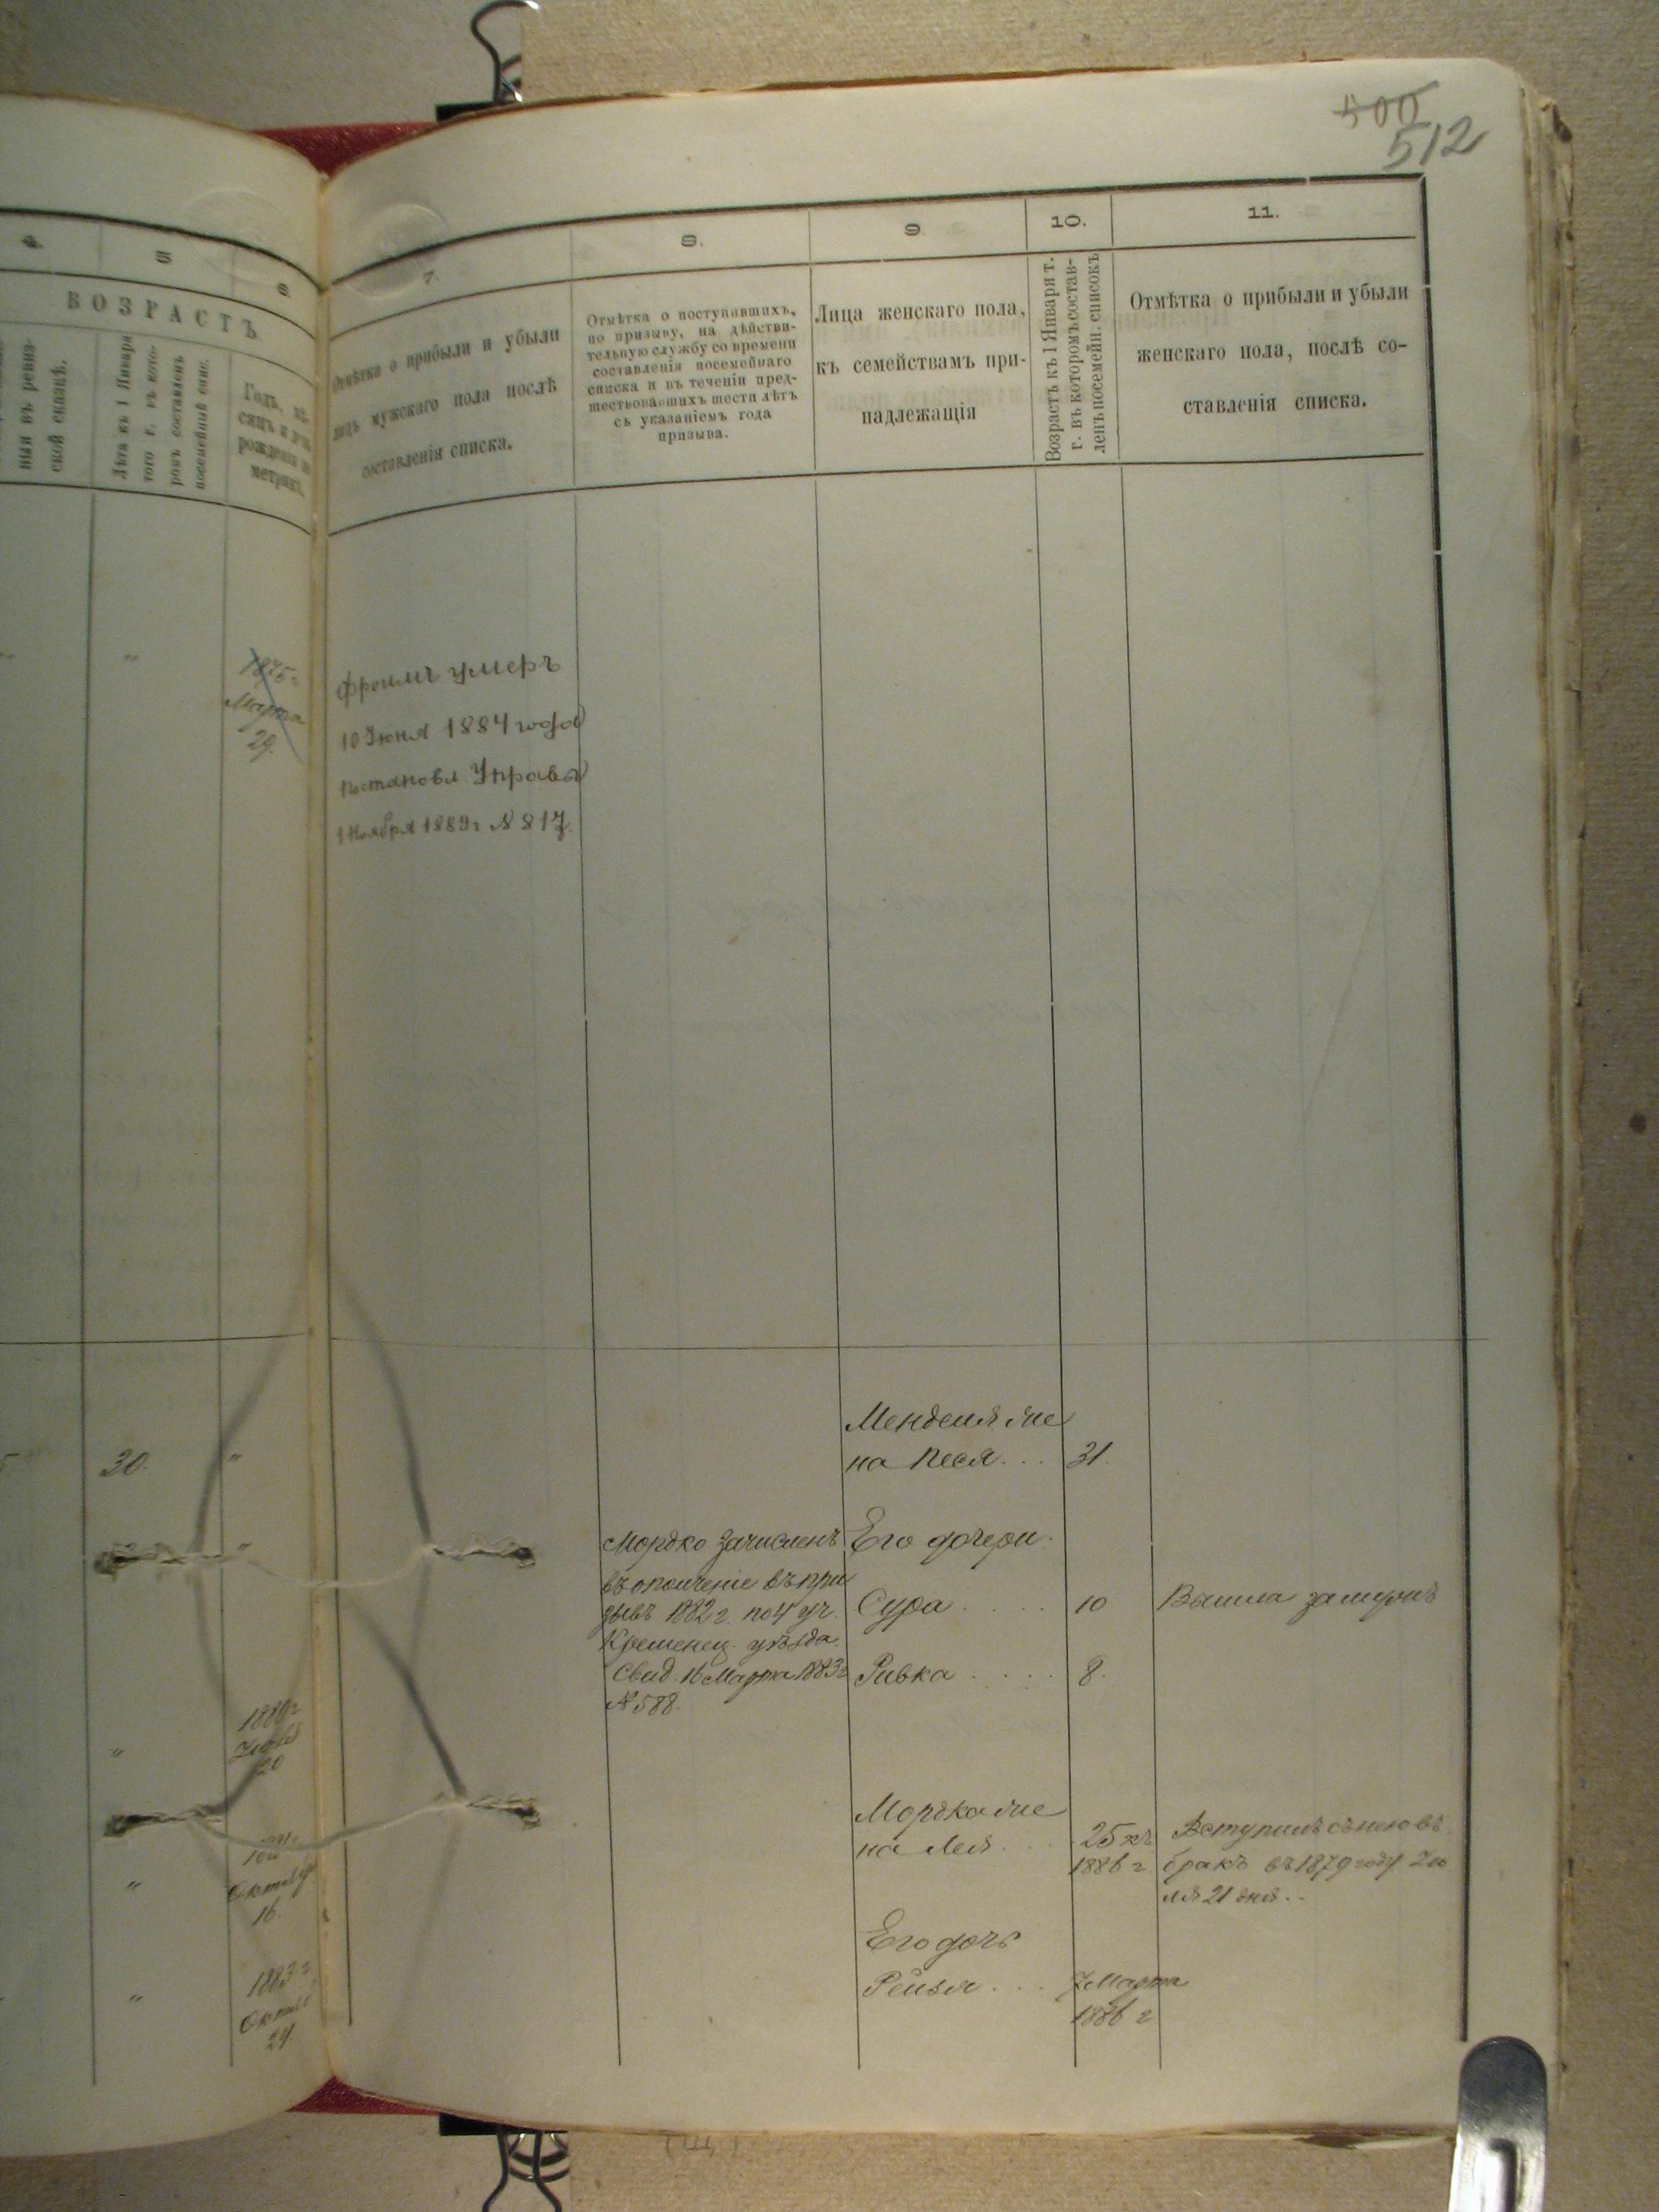 500
512
4.
5
6
7.
8.
9
10.
11.
ВОЗРАСТЪ
ныя въ ревиз-
ской сказкѣ.
Лѣта къ 1 Января
того г. въ кото-
ромъ составленъ
посемейный спис.
Годъ, мѣ-
сяцъ и день
рожденія по
метрик.
Отмѣтка о прибыли и убыли
лицъ мужскаго пола послѣ
составленія списка.
Отмѣтка о поступившихъ,
по призыву, на дѣйстви-
тельную службу со времени
составленія посемейнаго
списка и въ теченіи пред-
шествовавшихъ шести лѣтъ
съ указаніемъ года
призыва.
Лица женскаго пола,
къ семействамъ при-
надлежащія
Возрастъ къ 1 Января т.
г. въ которомъ состав-
ленъ посемейн. списокъ
Отмѣтка о прибыли и убыли
женскаго пола, послѣ со-
ставленія списка.
"
1875 г
Марта
29.
Фроимъ умеръ
10 Іюня 1884 года
постановл Управы
1 Ноября 1889 г № 817.
30.
"
Менделя же
на Песя . . . 31.
"
Мордко зачисленъ
въ ополченіе въ при
зывъ 1882 г. по 4 уч.
Кременец. уѣзда.
Свид. 16 Марта 1883 г
№ 588.
Его дочери:
Сура . . . . . 10 Вышла замужъ
Ривка . . . . 8.
"
20
Мордка же
на Лея . . . 25 къ
1886 г.
Вступилъ съ нею въ
бракъ въ 1879 году Ію
ля 21 дня..
"
Октября
16.
Его дочь
Рейзя . . . 7 Марта
1886 г
"
1883 г
24.